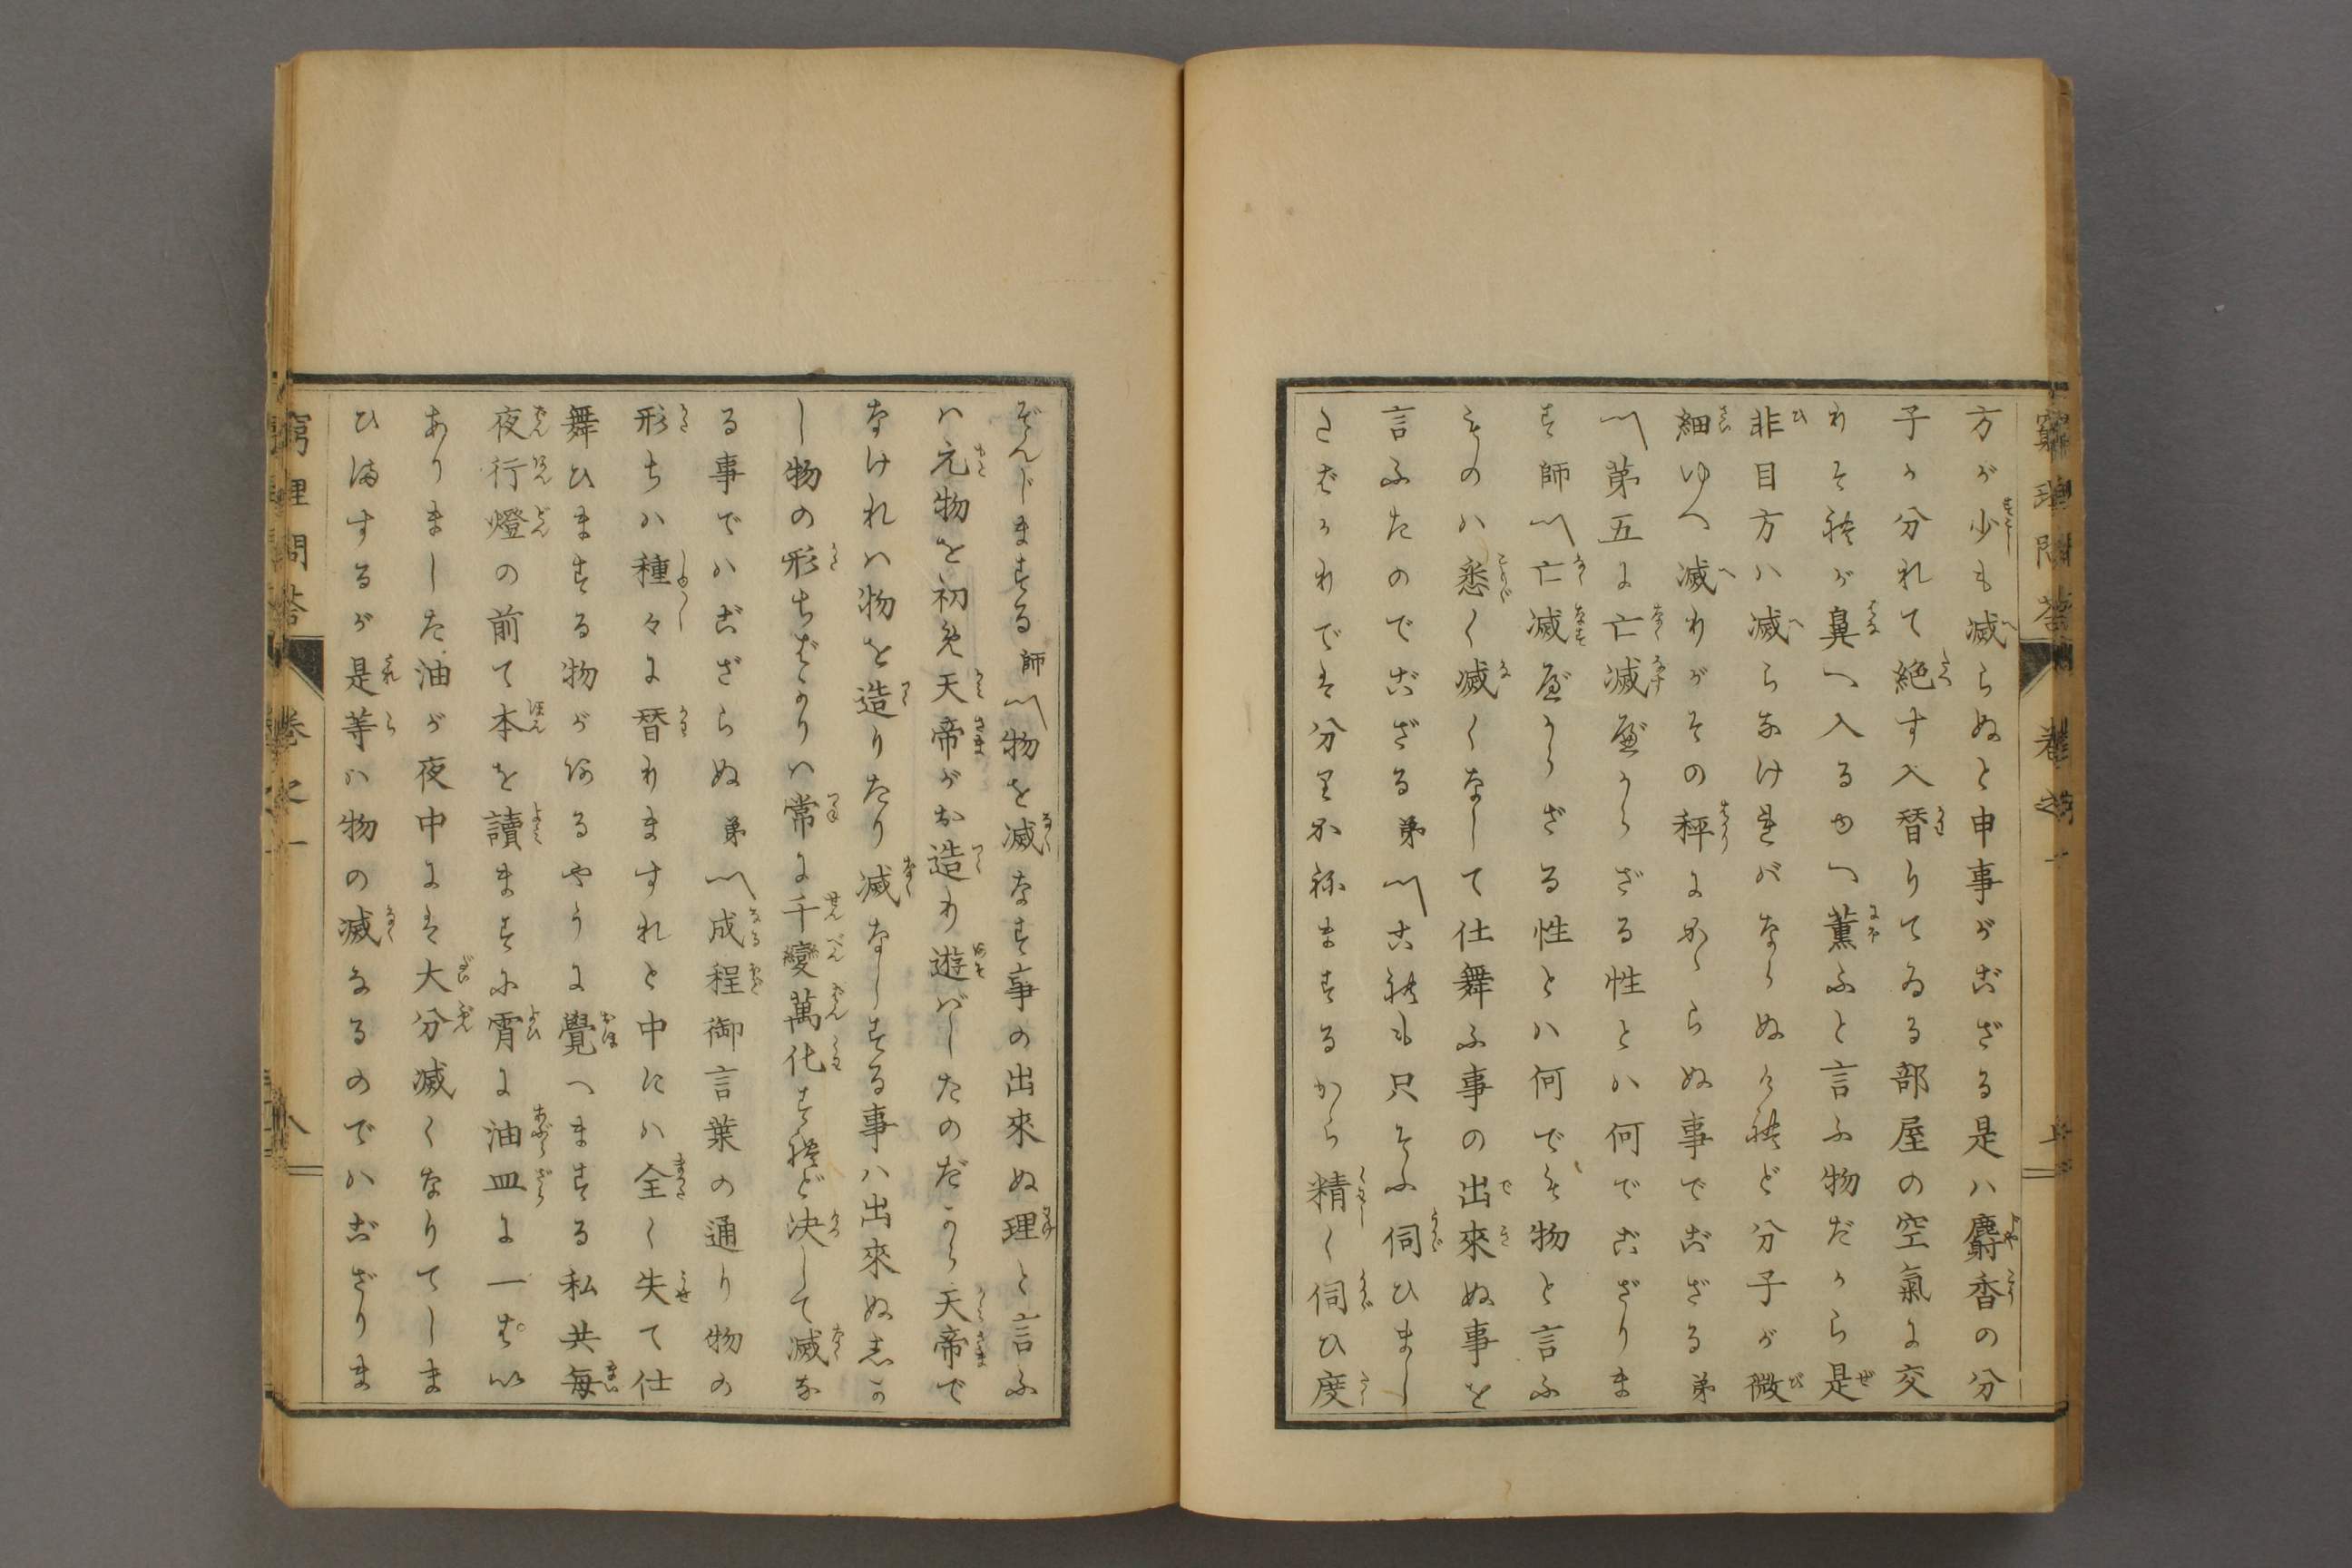 方が少も減らぬと申事がござる是ハ麝香の分
子か分れて絶す入替りてゐる部屋の空氣に交
れそれが鼻へ入るゆへ薫ふと言ふ物だから是
非目方ハ減らなけれバならぬけれど分子が微
細ゆへ減れがその秤にかゝらぬ事でござる弟
〽第五に亡滅べからざる性とハ何でござりま
す師〽亡滅べからざる性とハ何でも物と言ふ
ものハ悉く滅くなして仕舞ふ事の出來ぬ事を
言ふたのでござる弟〽古れも只そふ伺ひまし
たばかれでは分りかねまするから精く伺ひ度
ぞんじまする師〽物を滅なす事の出來ぬ理と言ふ
ハ元物を初め天帝がお造れ遊バしたのだから天帝で
なけれハ物を造りたり滅なしする事ハ出來ぬしか
し物の形ちばかりハ常に千變萬化すれど決して滅な
る事でハござらぬ弟〽成程御言葉の通り物の
形ちハ種々に替れますれと中にハ全く失て仕
舞ひまする物がなるやうに覺へまする私共毎
夜行燈の前て本を讀ますに宵に油皿に一ぱい
ありました油が夜中には大分滅くなりてしま
ひまするが是等ハ物の滅なるのでハござりま
窮理問答 卷之一 八